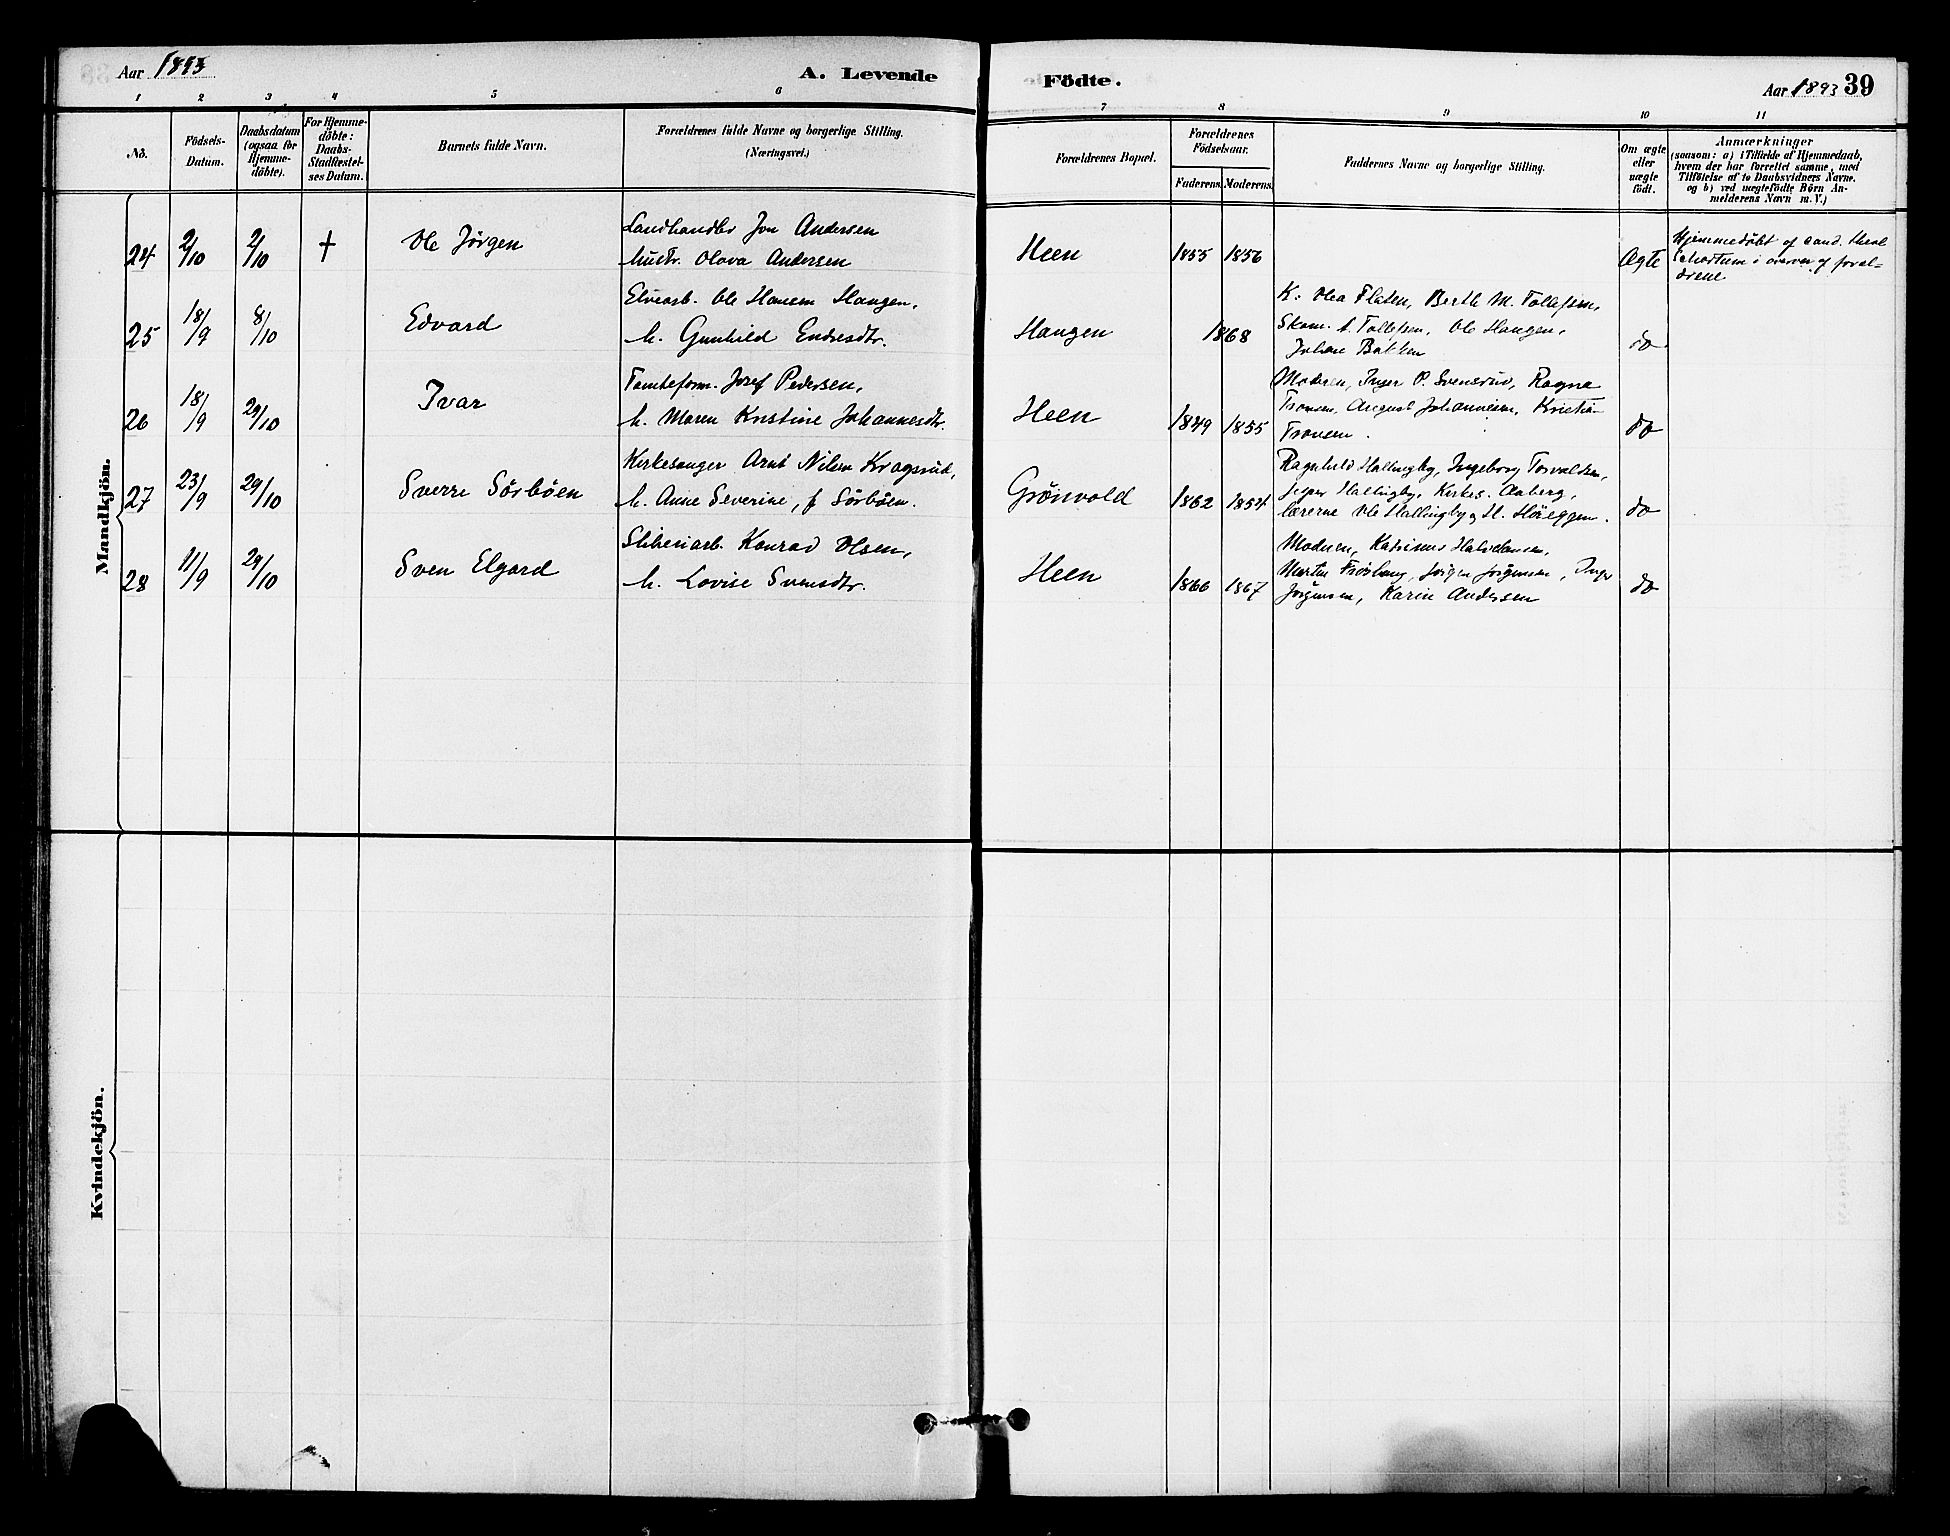 Aar 1893
A. Levende
Födte.
Aar 1893 39
1 2 3 4 5 6 7 8 9 10 11
No.
Födsels-
Datum.
Daabsdatum
(ogsaa for
Hjemme-
döbte).
For Hjemme-
döbte:
Daabs-
Stadfæstel-
ses Datum.
Barnets fulde Navn.
Forældrenes fulde Navne og borgerlige Stilling.
(Næringsvei.)
Forældrenes Bopæl.
Forældrenes
Födselsaar.
Faderens. Moderens.
Faddernes Navne og borgerlige Stilling.
Om ægte
eller
uægte
födt.
Anmærkninger
(saasom: a) i Tilfælde af Hjemmedaab,
hvem der har forrettet samme, med
Tilföielse af to Daabsvidners Navne.
og b) ved uægtefödte Börn An-
melderens Navn m. V.)
Mandkjön.
24 2/10 2/10 + Ole Jörgen
Landhandler Jon Andersen
hustr. Olava Andersen
Heen 1855 1856 Ægte
Hjemmedöbt af cand. theol
i overvær af foræl-
drene
25 18/9 8/10 Edvard
Elvearb. Ole Hansen Haugen,
h. Gunhild Endresdtr.
Haugen 1868
K: Olea Flaten, Berthe M. Tollefsen,
Skom. A. Tollefsen, Ole Haugen,
Johan Bakken
do
26 18/9 29/10 Ivar
Tomteform. Josef Pedersen,
h. Maren Kristine Johannesdtr.
Heen 1849 1855
Moderen, Inger P. Svensrud, Ragna
August Johannesen, Kristian
do
27 23/9 29/10 Sverre Sörböen
Kirkesanger Arnt Nilsen Kragsrud,
h. Anne Severine, f Sörböen.
Grönvold 1862 1854
Ragnhild Hallingby, Ingeborg Torvaldsen,
Hallingby, Kirkes. Aaberg,
lærerne Ole Hallingby og H.
do
28 11/9 29/10 Sven Elgard
Sliberiarb. Konrad Olsen,
h. Lovise Svensdtr.
Heen 1866 1867
Moderen,
Martin Jörgen Jörgensen, Inga
Jörgensen, Karin Andersen
do
Kvindekjön.